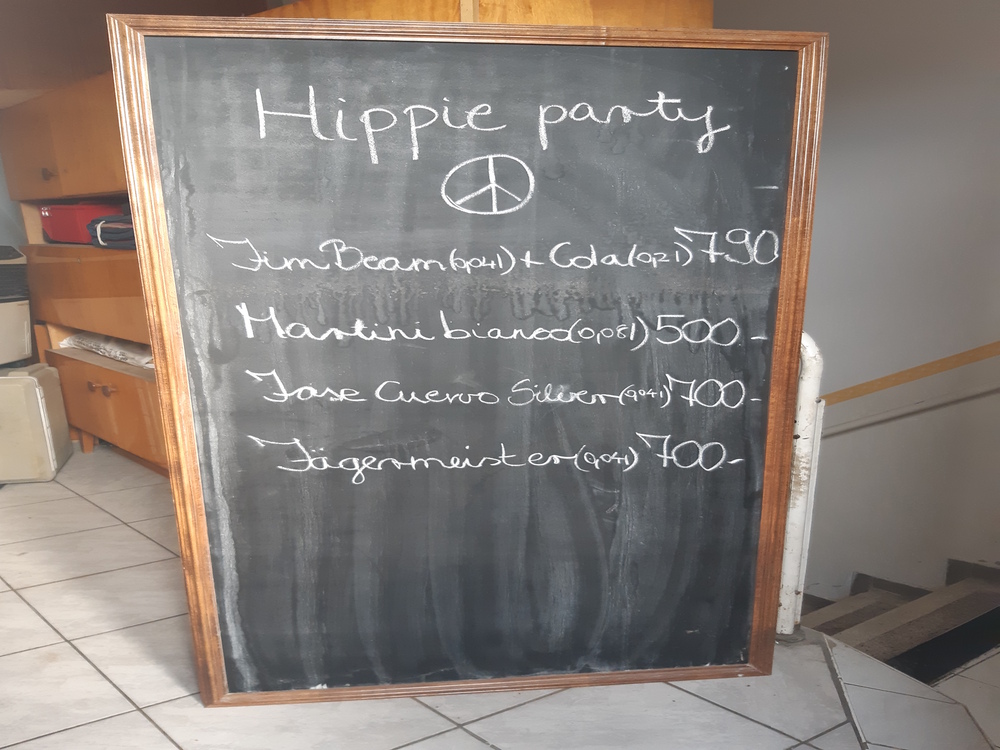 Hippie party
Jim Beam (0,04l) + Cola (0,2l) 790
Martini bianco (0,08l) 500.-
Jose Cuervo Silver (0,04l) 700.-
Jägermeister (0,04l) 700.-